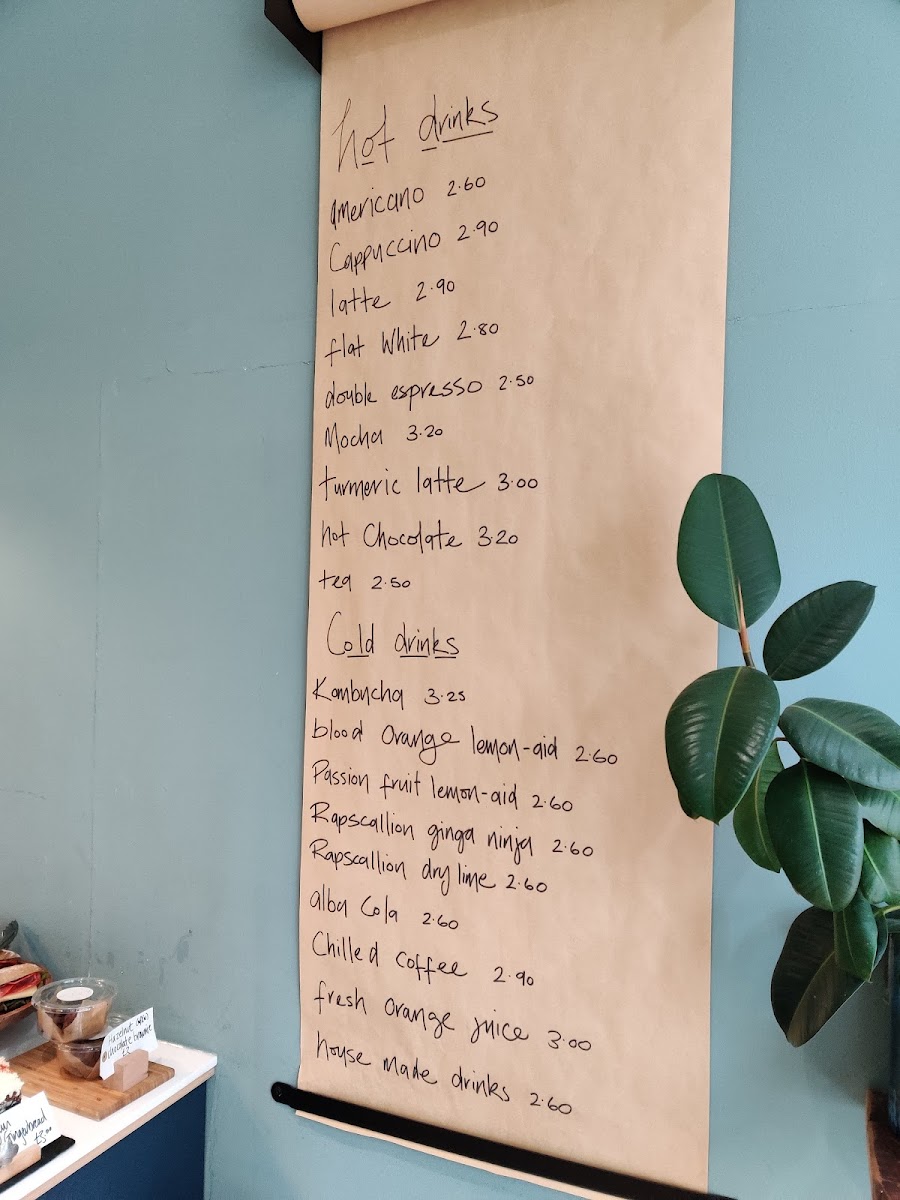 hot drinks
americano 2.60
Cappuccino 2.90
latte 2.90
flat White 2.80
double espresso 2.50
Mocha 3.20
turmeric latte 3.00
hot Chocolate 3.20
tea 2.50
Cold drinks
Kombucha 3.25
blood Orange lemon-aid 2.60
Passion fruit lemon-aid 2.60
Rapscallion ginga ninja 2.60
Rapscallion dry lime 2.60
alba Cola 2.60
Chilled coffee 2.90
fresh orange juice 3.00
house made drinks 2.60
Hazelnut
chocolate
£2
gingerbread
£3.00